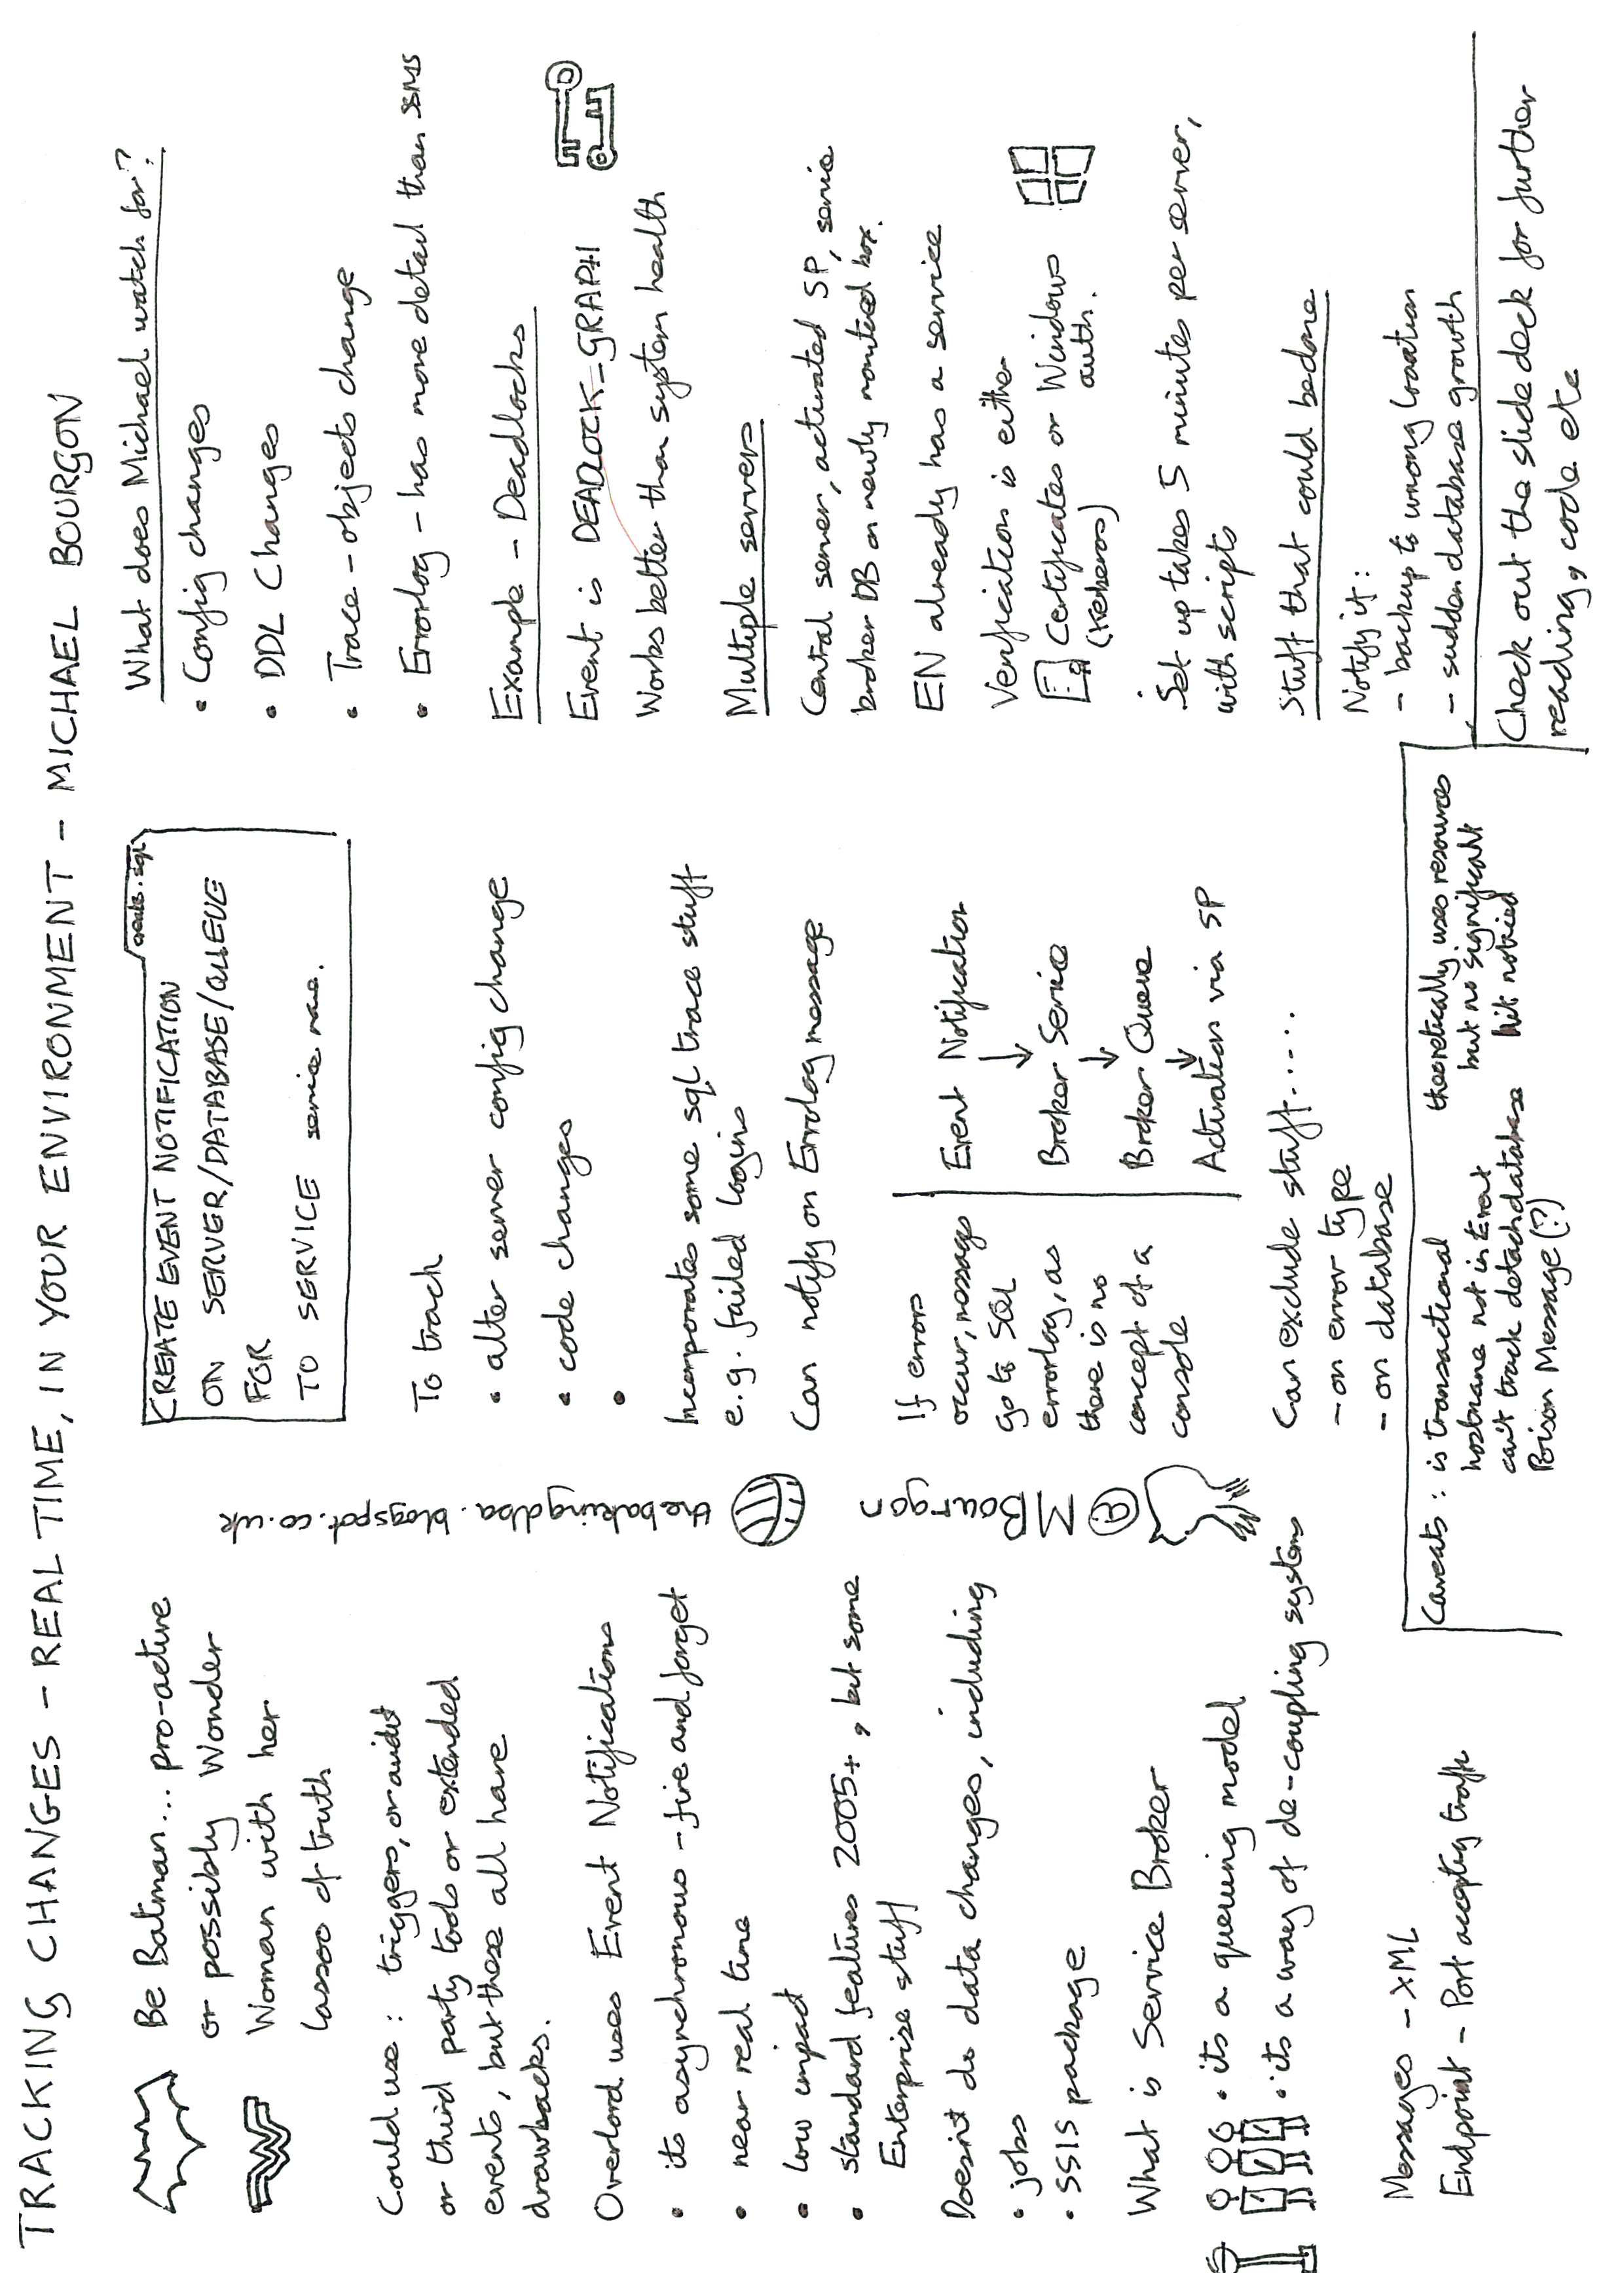 TRACKING CHANGES – REAL TIME, IN YOUR ENVIRONMENT – MICHAEL BOURGON
Be Batman... pro-active
or possibly Wonder
Woman with her
lassoo of truth
Could use : triggers, or audit
or third party tools or extended
events, but these all have
drawbacks.
Overlord uses Event Notifications
• its asynchronous – fire and forget
• near real time
• low impact
• standard features 2005+, but some
Enterprise stuff
Doesn't do data changes, including
• jobs
• SSIS package
What is Service Broker
• its a queuing model
• its a way of de-coupling systems
Messages – XML
Endpoint – Port accepting traffic
thebakingdba.blogspot.co.uk
@MBourgon
create.sql
CREATE EVENT NOTIFICATION
ON SERVER/DATABASE/QUEUE
FOR
TO SERVICE service name.
To track
• alter server config change
• code changes
•
Incorporates some sql trace stuff
e.g. failed logins
Can notify on Errolog message
If errors
occur, messages
go to SQL
errorlog, as
there is no
concept of a
console
Event Notification
↓
Broker Service
↓
Broker Queue
↓
Activation via SP
Can exclude stuff.....
– on error type
– on database
Caveats : is transactional
hostname not in Event
can't track detach database
Poison Message (?)
theoretically uses resources
but no significant
hit noticed
What does Michael watch for?
• Config changes
• DDL Changes
• Trace – objects change
• Errorlog – has more detail than SSMS
Example – Deadlocks
Event is DEADLOCK_GRAPH
Works better than system health
Multiple servers
Central server, activated SP, service
broker DB on newly monitored box.
EN already has a service
Verification is either
Certificates or Windows
(Kerberos) auth.
Set up takes 5 minutes per server,
with scripts
Stuff that could be done
Notify if :
– backup to wrong location
– sudden database growth
Check out the slide deck for further
reading, code etc